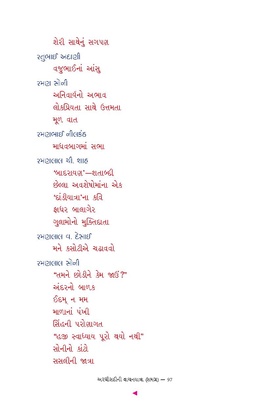 શેરી સાથેનું સગપણ
રતુભાઈ અદાણી
વજુભાઈનાં આંસુ
રમણ સોની
અનિવાર્યનો અભાવ
લોકપ્રિયતા સાથે ઉત્તમતા
મૂળ વાત
રમણભાઈ નીલકંઠ
માધવબાગમાં સભા
રમણલાલ ચી. શાહ
‘બાદરાયણ’—શતાબ્દી
છેલ્લા અવશેષોમાંના એક
‘દાંડીયાત્રા’ના કવિ
ફાધર બાલાગેર
ગુલામોનો મુક્તિદાતા
રમણલાલ વ. દેસાઈ
મને કસોટીએ ચઢાવવો
રમણલાલ સોની
“તમને છોડીને કેમ જાઉં?”
અંદરનો બાળક
ઈદમ્ ન મમ
માળાનાં પંખી
સિંહની પરોણાગત
“હજી સ્વાધ્યાય પૂરો થયો નથી”
સોનીનો કાંટો
સસલીની જાત્રા
અરધીસદીની વાચનયાત્રા (સમગ્ર) — 97